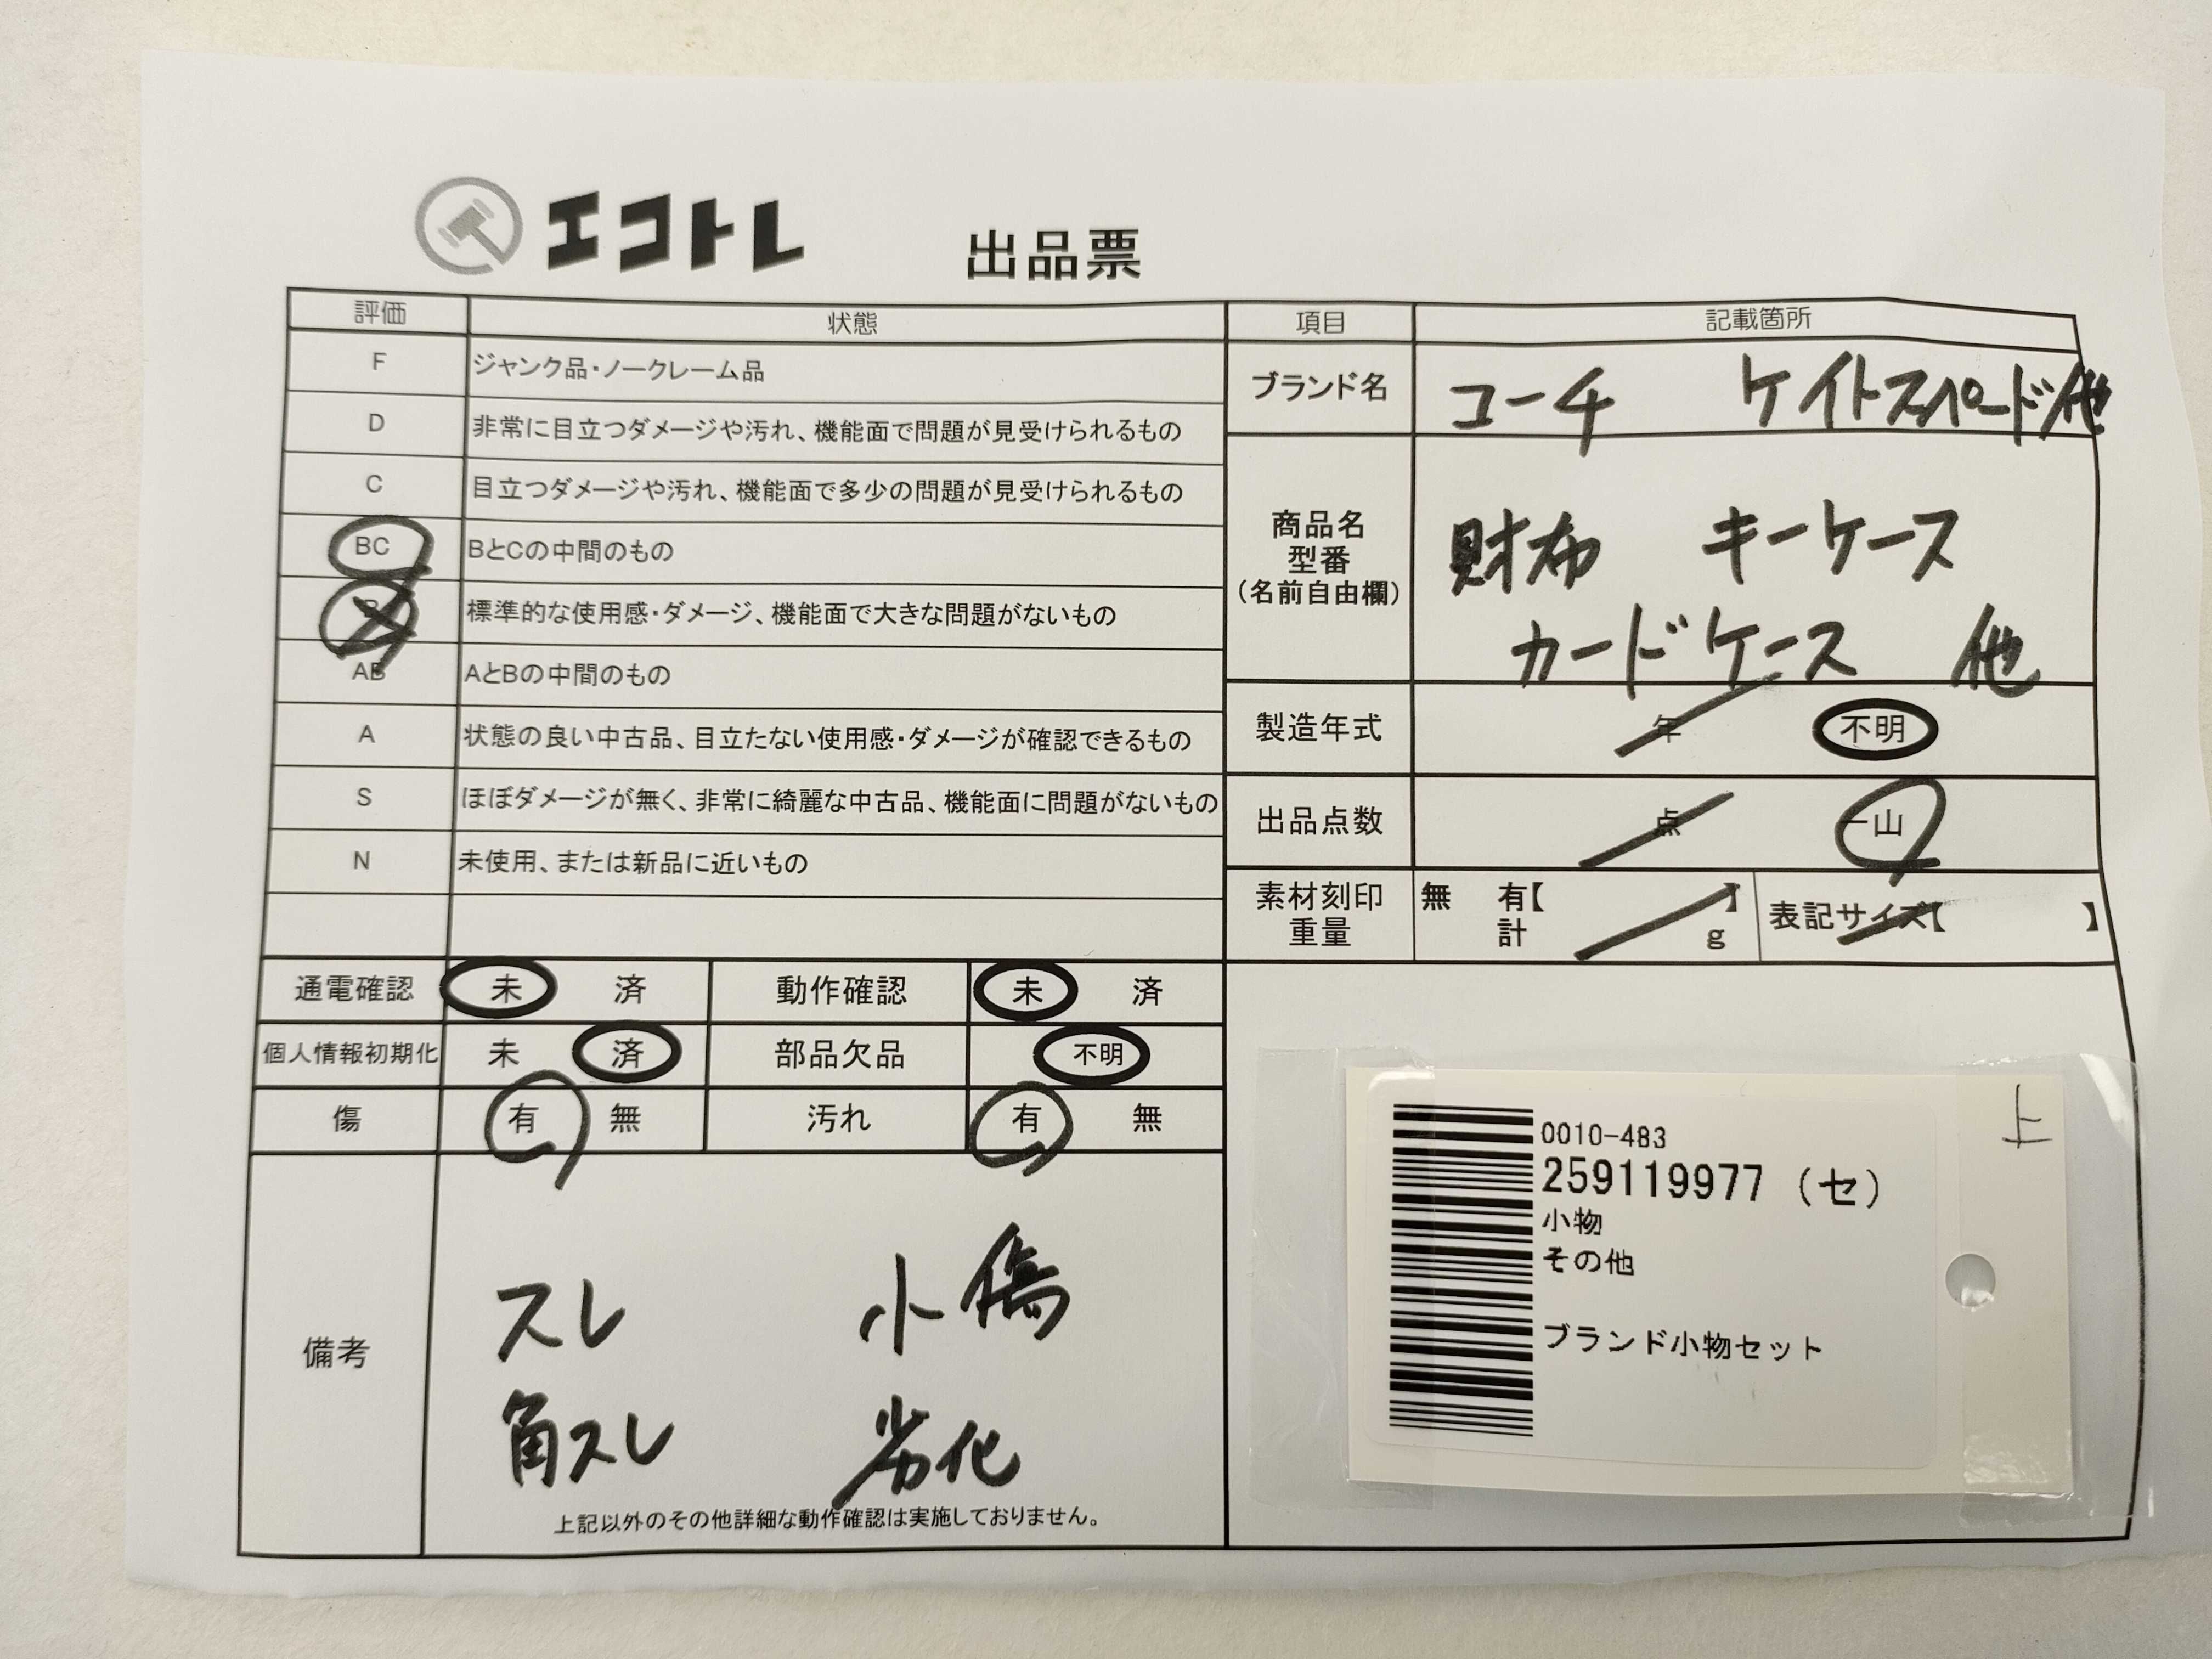 エコトレ 出品票
評価 状態
F ジャンク品・ノークレーム品
D 非常に目立つダメージや汚れ、機能面で問題が見受けられるもの
C 目立つダメージや汚れ、機能面で多少の問題が見受けられるもの
BC BとCの中間のもの
B 標準的な使用感・ダメージ、機能面で大きな問題がないもの
AB AとBの中間のもの
A 状態の良い中古品、目立たない使用感・ダメージが確認できるもの
S ほぼダメージが無く、非常に綺麗な中古品、機能面に問題がないもの
N 未使用、または新品に近いもの
項目 記載箇所
ブランド名 コーチ ケイトスペード/他
商品名
型番
(名前自由欄)
財布 キーケース
カードケース 他
製造年式 年 不明
出品点数 点 一山
素材刻印 無 有【 】 表記サイズ【 】
重量 計 g
通電確認 未 済 動作確認 未 済
個人情報初期化 未 済 部品欠品 不明
傷 有 無 汚れ 有 無
備考
スレ 小傷
角スレ 劣化
上記以外のその他詳細な動作確認は実施しておりません。
上
0010-483
259119977 (セ)
小物
その他
ブランド小物セット